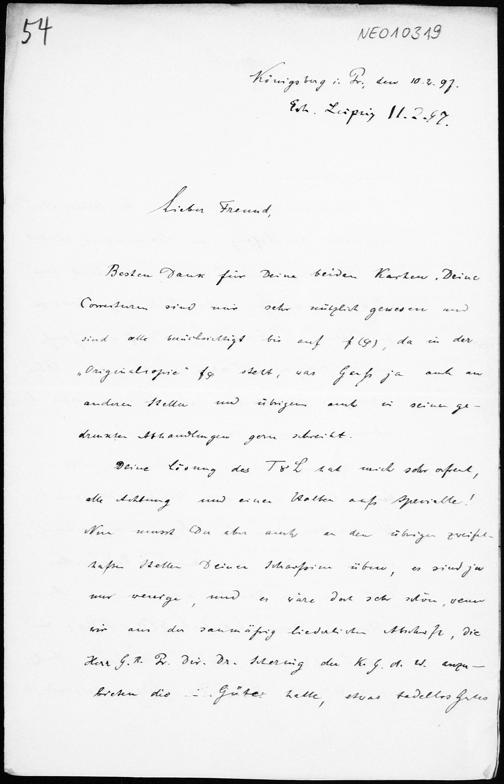 54
NE010319
Königsberg i. Pr., den 10.2.97.
Erh. Leipzig 11.2.97.
Lieber Freund,
Besten Dank für Deine beiden Karten. Deine
Correcturen sind mir sehr nützlich gewesen und
sind alle berücksichtigt bis auf f(φ), da in der
„Originalcopie“ fφ steht, was Gauß ja auch an
anderen Stellen und übrigens auch in seinen ge-
druckten Abhandlungen gern schreibt.
Deine Lösung des T&L hat mich sehr erfreut,
alle Achtung und einen Halben aufs Specielle!
Nun musst Du aber auch an den übrigen zweifel-
haften Stellen Deinen Scharfsinn üben, es sind ja
nur wenige, und es wäre doch sehr schön, wenn
wir aus der saumäßig liederlichen Abschrift, die
Herr G. R. Pr. Dir. Dr. Schering der K. G. d. W. anzu-
bieten die Güte hatte, etwas tadellos Gutes